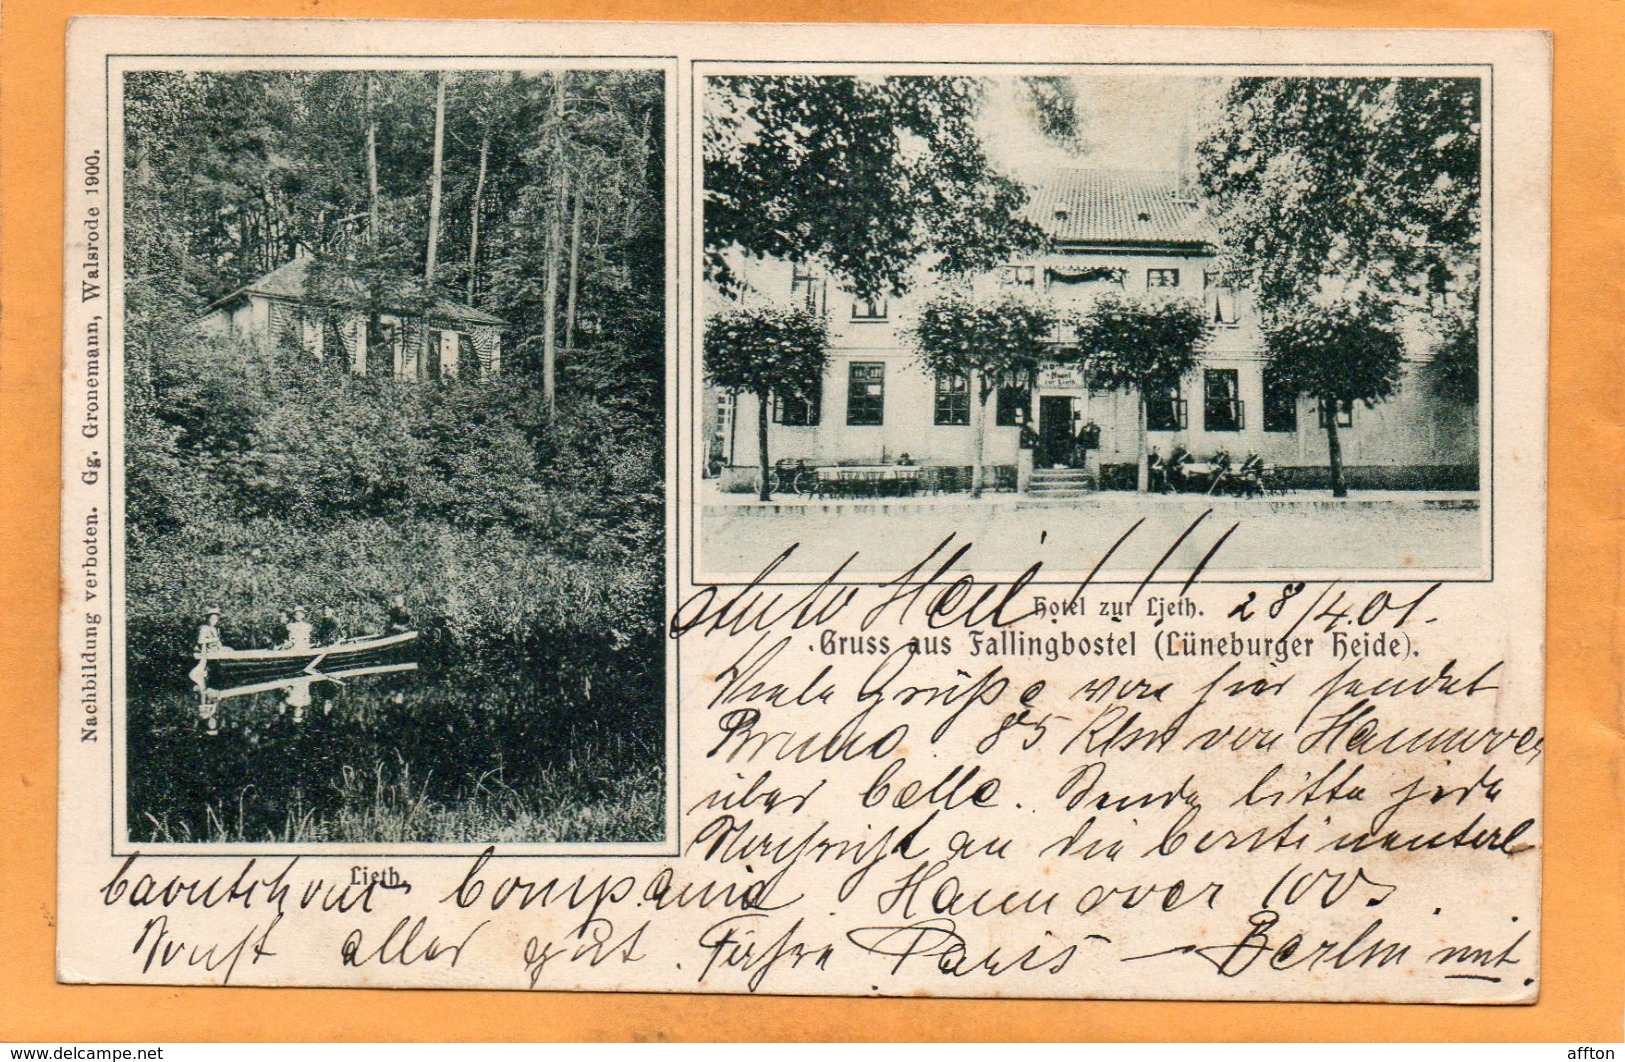 Nachbildung verboten. Gg. Gronemann, Walsrode 1900.
Auto Heil!!!
Hotel zur Ljeth. 28/4.01.
Gruss aus Fallingbostel (Lüneburger Heide).
Viele Grüße von hier sendet
Bruno. 85 Klm von Hannover
über Celle. Sende bitte jede
Nachricht an die Continental
Caoutchouc Compagnie. Hannover 100
Lieth.
Sonst alles gut. Fahre Paris — Berlin mit.
delcampe.net
affton